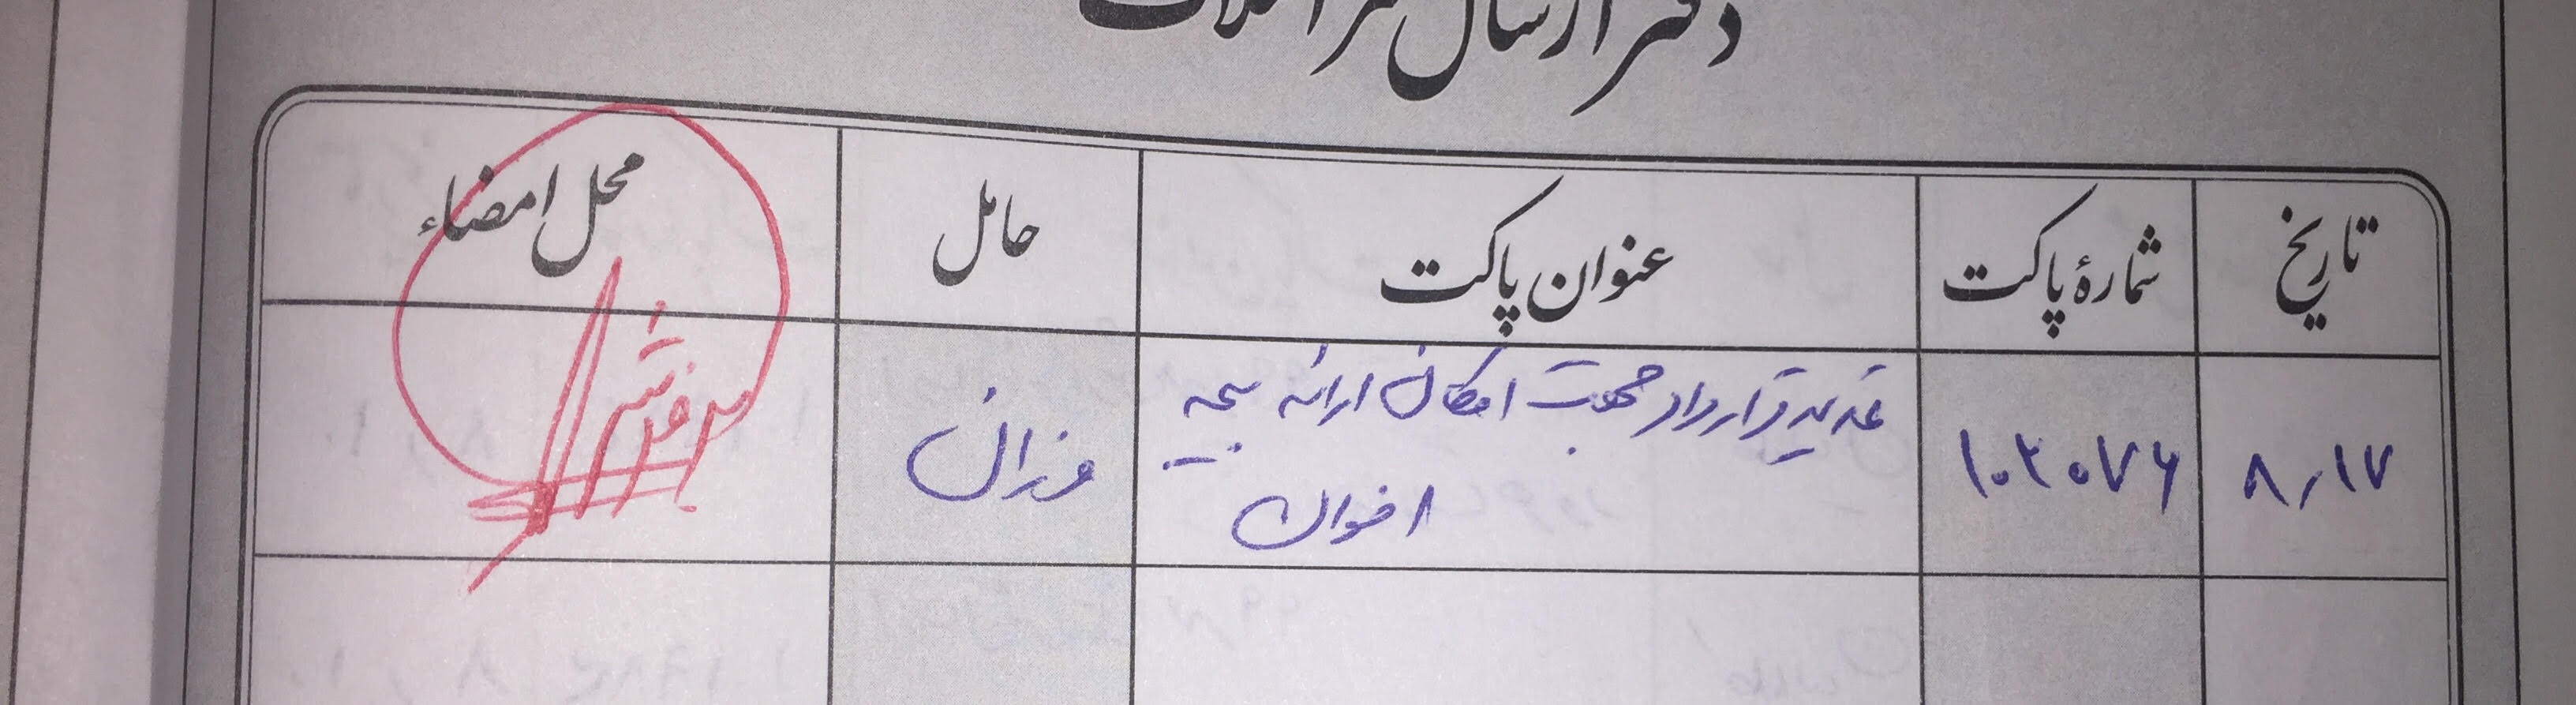 دفتر ارسال مراسلات
تاریخ شمارهٔ پاکت عنوان پاکت حامل محل امضاء
۸/۱۷ ۱۰۲۰۷۶ تمدید قرارداد جهت امکان ارائه بیمه
اخوان